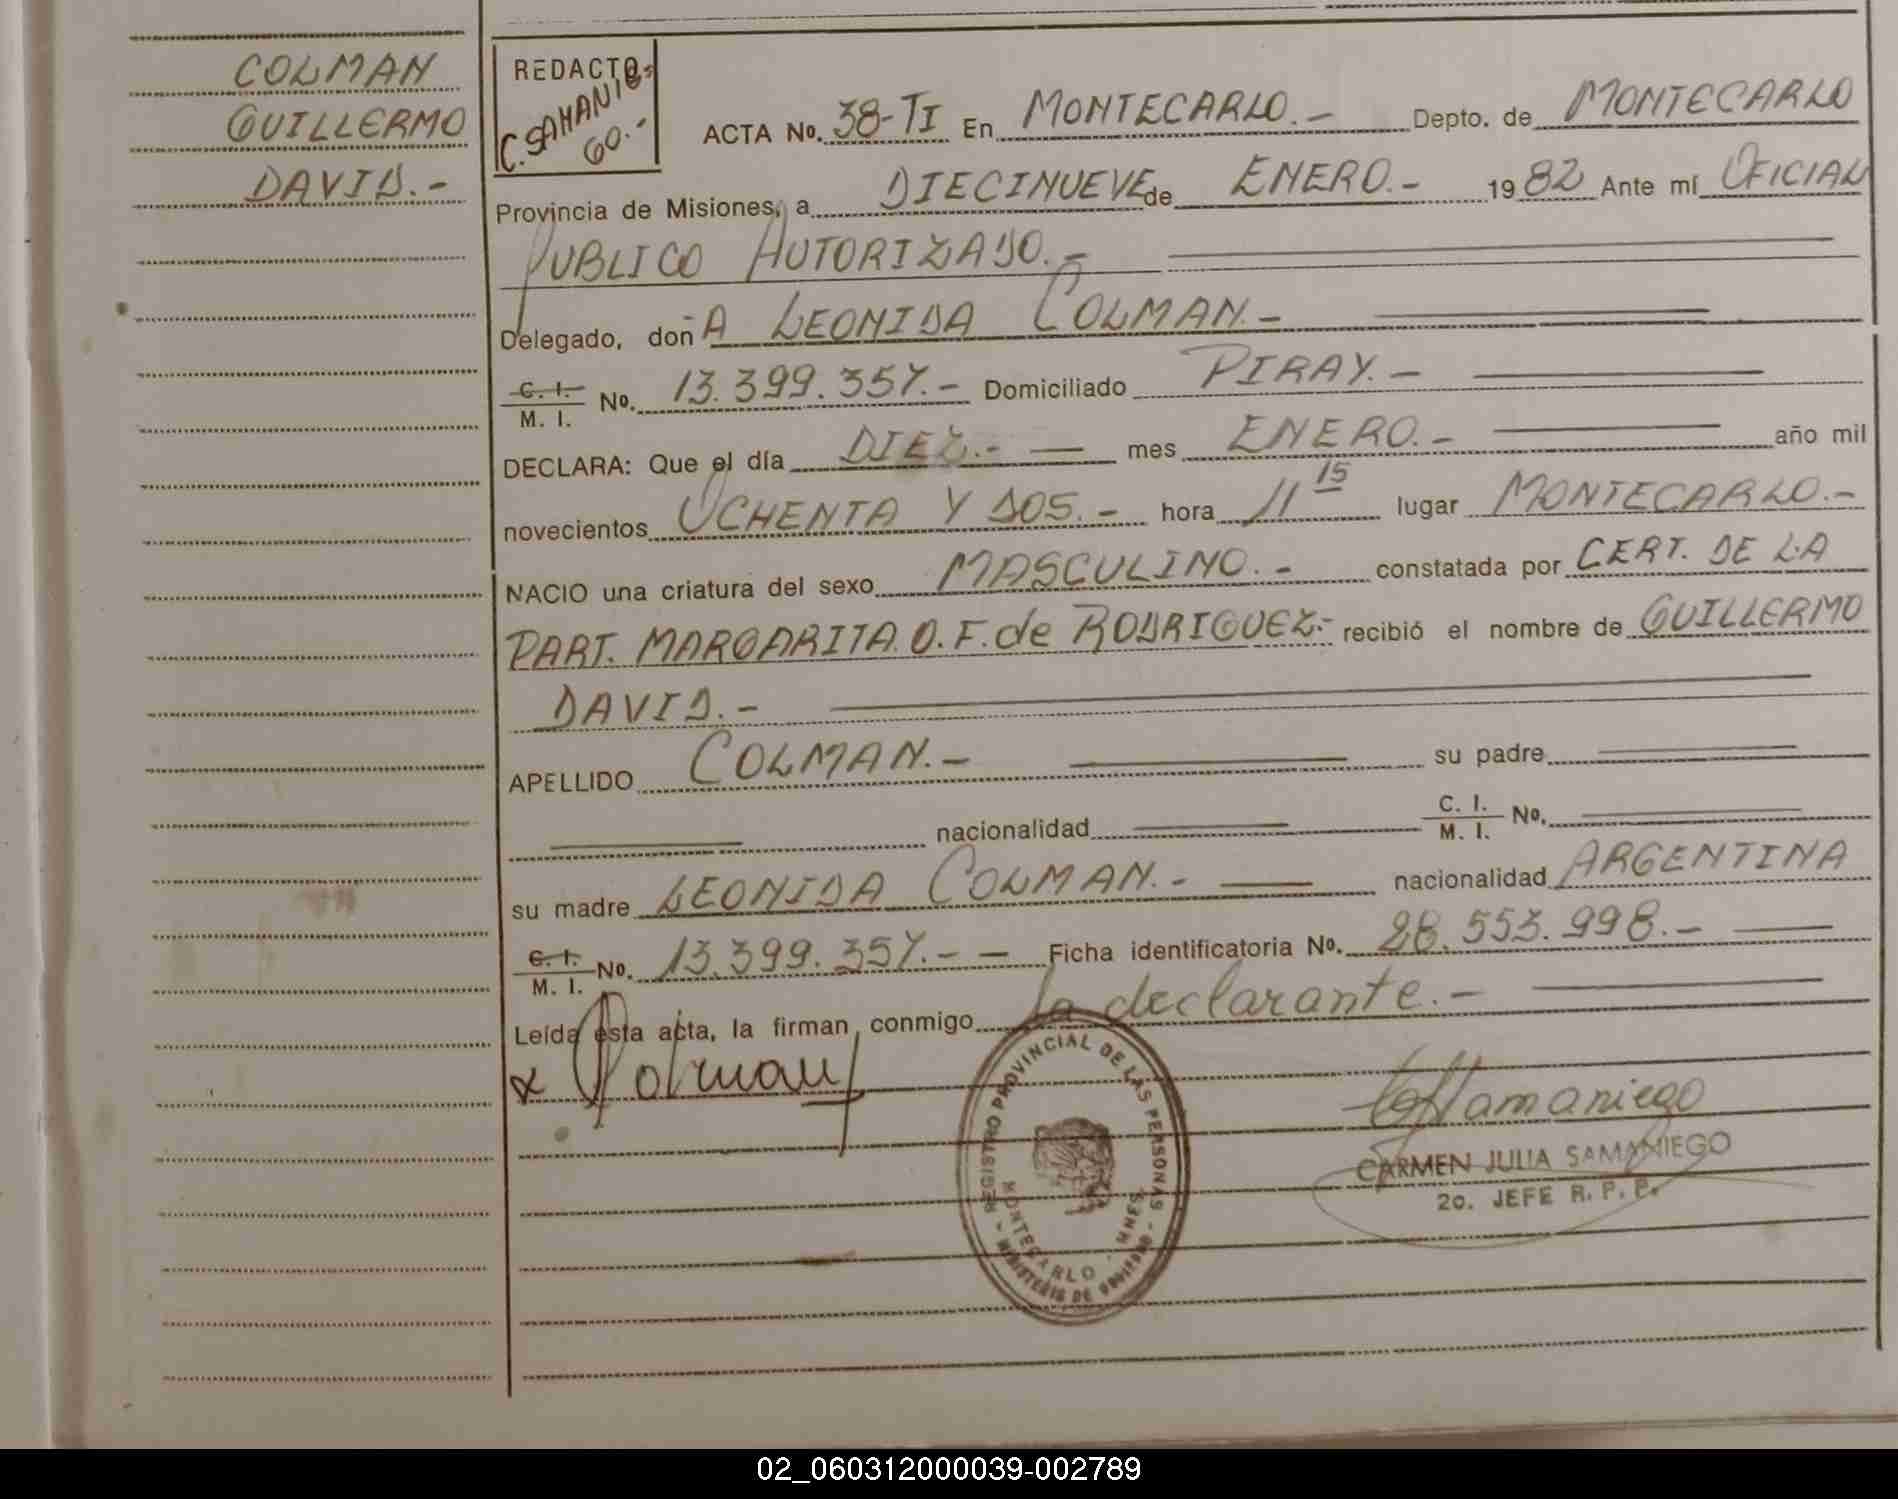 COLMAN
GUILLERMO
DAVID.-
REDACTO
C. SAMANIE-
GO.-
ACTA No. 38-TI En MONTECARLO.- Depto. de MONTECARLO
Provincia de Misiones, a DIECINUEVE de ENERO.- 1982 Ante mí OFICIAL
PUBLICO AUTORIZADO.-
Delegado, don A LEONIDA COLMAN.-
C. I.
M. I. No. 13.399.357.- Domiciliado PIRAY.-
DECLARA: Que el día DIEZ.- mes ENERO.- año mil
novecientos OCHENTA Y DOS.- hora 11 15 lugar MONTECARLO.-
NACIO una criatura del sexo MASCULINO.- constatada por CERT. DE LA
PART. MARGARITA. O. F. de RODRIGUEZ.- recibió el nombre de GUILLERMO
DAVID.-
APELLIDO COLMAN.- su padre
nacionalidad C. I.
M. I. No.
su madre LEONIDA COLMAN.- nacionalidad ARGENTINA
C. I.
M. I. No. 13.399.357.- Ficha identificatoria No. 28.553.998.-
Leída esta acta, la firman conmigo la declarante.-
x Colman
Samaniego
CARMEN JULIA SAMANIEGO
2o. JEFE R. P. P.
REGISTRO PROVINCIAL DE LAS PERSONAS - MINISTERIO DE GOBIERNO -
MONTECARLO - MNES
02_060312000039-002789